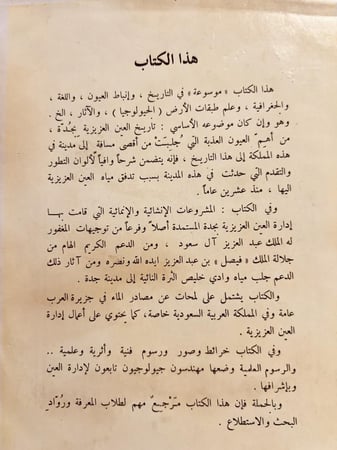 هذا الكتاب
هذا الكتاب « موسوعة » في التاريخ ، وإنباط العيون ، واللغة ،
والجغرافية ، وعلم طبقات الأرض ( الجيولوجيا ) ، والآثار ، الخ .
وهو وإن كان موضوعه الأساسي : تاريخ العين العزيزية بجُدّة ،
من أهمّ العيون العذبة التي جُلِبَتْ من أقصى مسافة إلى مدينة في
هذه المملكة إلى هذا التاريخ ، فإنه يتضمن شرحاً وافياً لألوان التطور
والتقدم التي حدثت في هذه المدينة بسبب تدفق مياه العين العزيزية
اليها ، منذ عشرين عاماً .
وفي الكتاب : المشروعات الإنشائية والإنمائية التي قامت بها
إدارة العين العزيزية بجدة المستمدة أصلاً وفرعاً من توجيهات المغفور
له الملك عبد العزيز آل سعود ، ومن الدعم الكريم الهام من
جلالة الملك « فيصل » بن عبد العزيز ايده الله ونصره ومن آثار ذلك
الدعم جلب مياه وادي خليص الثرة النائية إلى مدينة جدة .
والكتاب يشتمل على لمحات عن مصادر الماء في جزيرة العرب
عامة وفي المملكة العربية السعودية خاصة ، كما يحتوي على أعمال إدارة
العين العزيزية .
وفي الكتاب خرائط وصور ورسوم فنية وأثرية وعلمية ..
والرسوم العلمية وضعها مهندسون جيولوجيون تابعون لإدارة العين
وبإشرافها .
وبالجملة فإن هذا الكتاب مَرْجِعٌ مهم لطلاب المعرفة ورُوّادِ
البحث والاستطلاع .